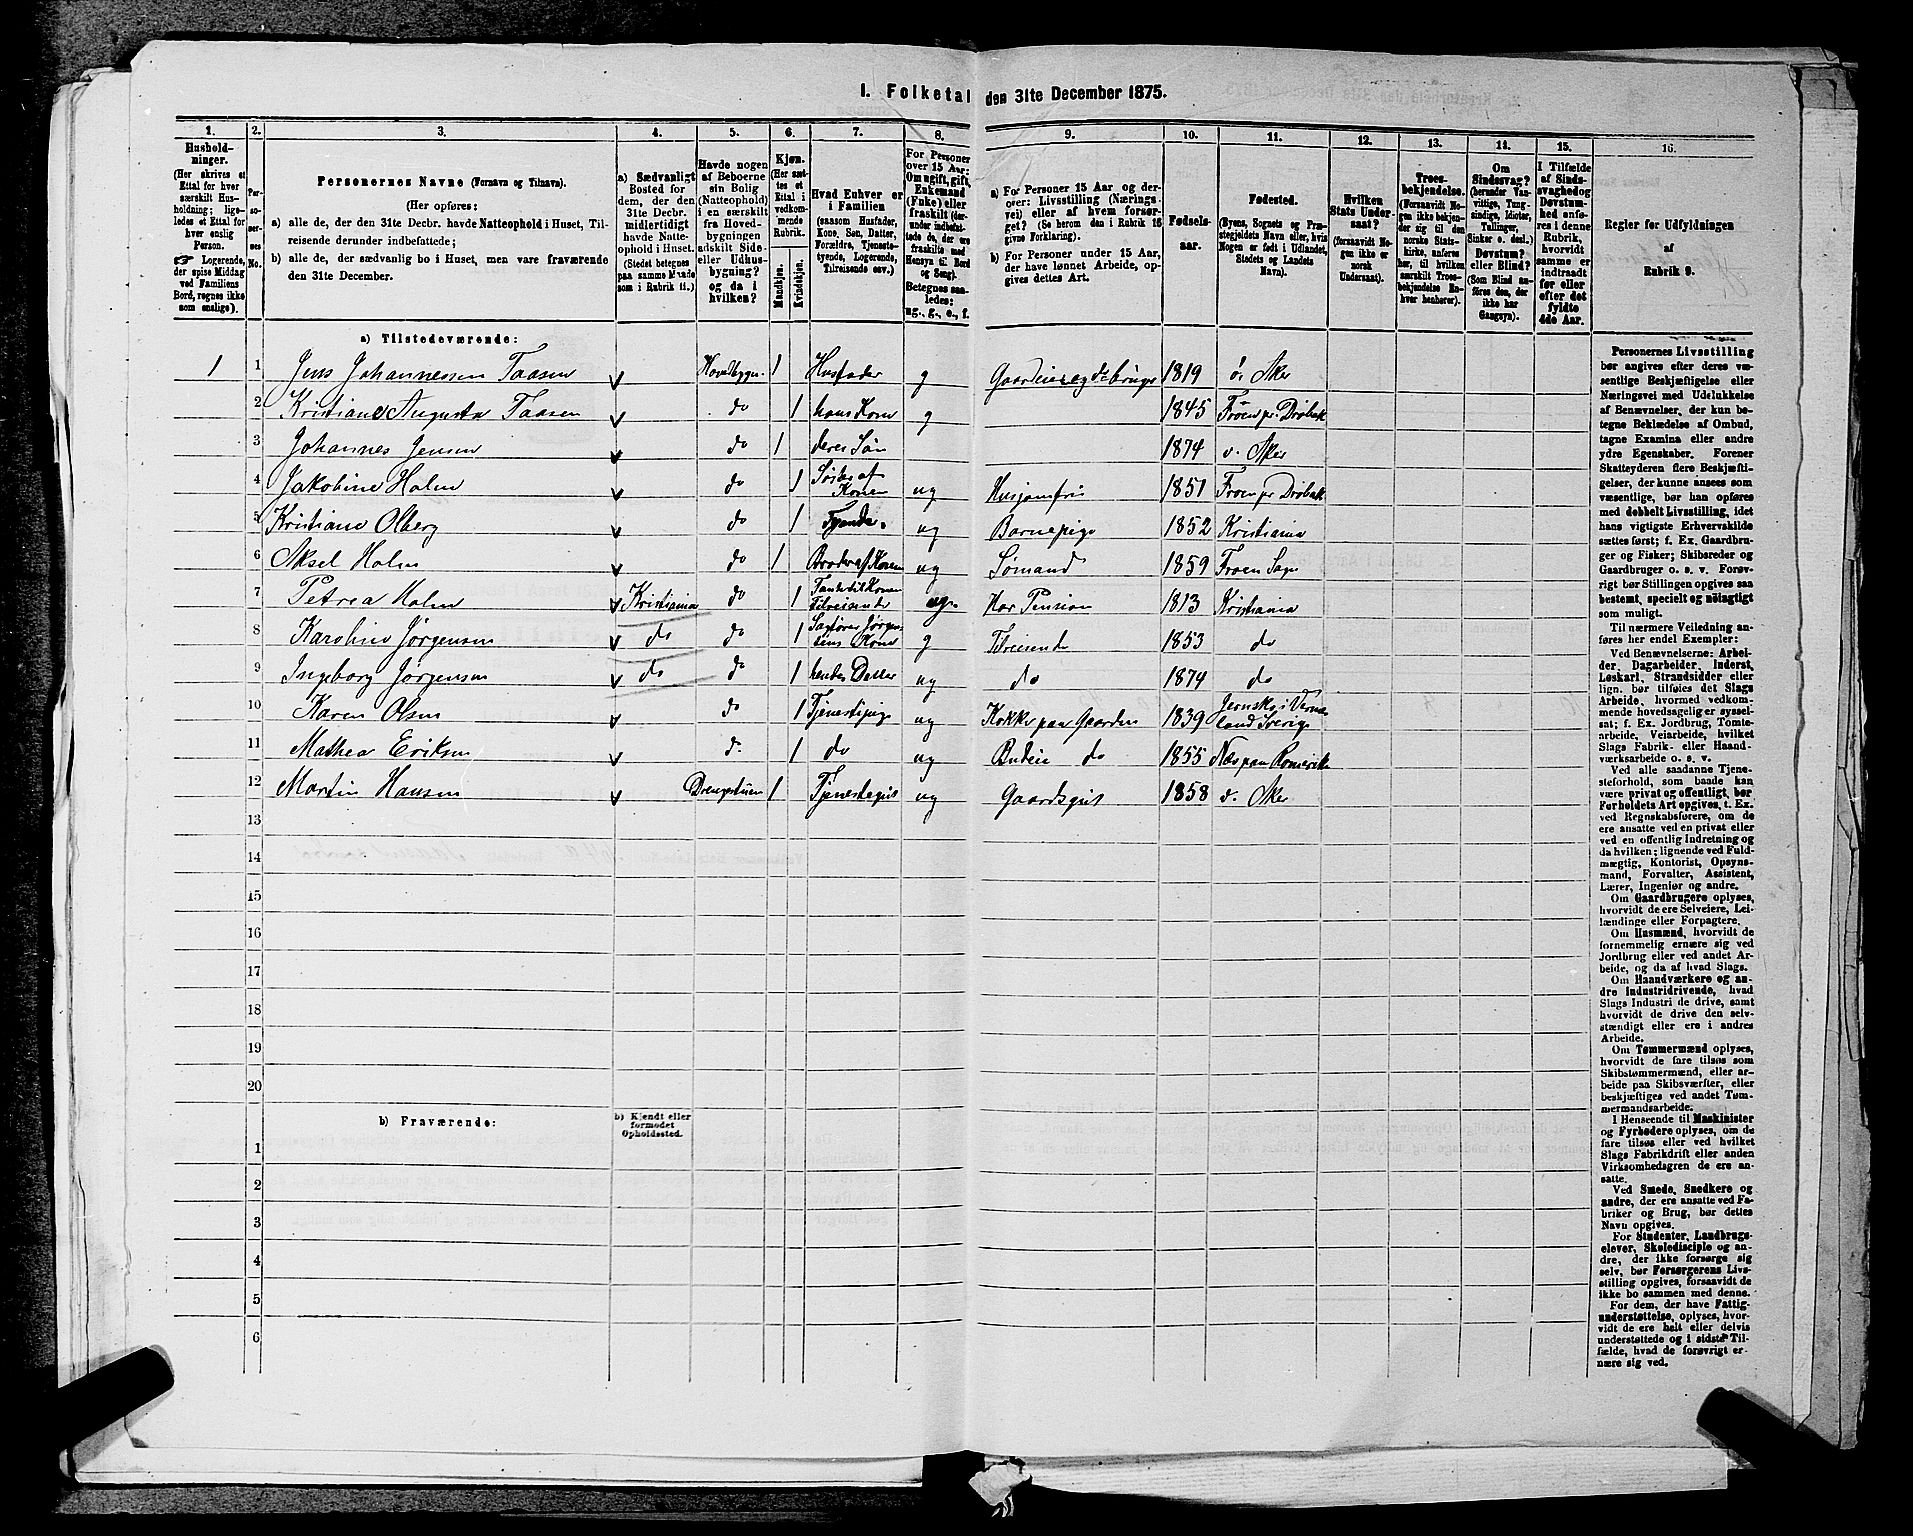 1. Folketal den 31te December 1875.
1. 2. 3. 4. 5. 6. 7. 8. 9. 10. 11. 12. 13. 14. 15. 16.
Hushold-
ninger.
(Her skrives et
Ettal for hver
særskilt Hus-
holdning; lige-
ledes et Ettal for
hver enslig
Person.
☛ Logerende,
der spise Middag
ved Familiens
Bord, regnes ikke
som enslige).
Per-
so-
ner-
nes
No.
Personernes Navne (Fornavn og Tilnavn).
(Her opføres:
a) alle de, der den 31te Decbr. havde Natteophold i Huset, Til-
reisende derunder indbefattede;
b) alle de, der sædvanlig bo i Huset, men vare fraværende
den 31te December.
a) Sædvanligt
Bosted for
dem, der den
31te Decbr.
midlertidigt
havde Natte-
ophold i Huset.
(Stedet betegnes
paa samme Maade
som i Rubrik 11.)
Havde nogen
af Beboerne
sin Bolig
(Natteophold)
i en særskilt
fra Hoved-
bygningen
adskilt Side-
eller Udhus-
bygning?
og da i
hvilken?
Kjøn.
(Her sæt-
tes et
Ettal i
vedkom-
mende
Rubrik.
Mandkjøn.
Kvindekjøn.
Hvad Enhver er
i Familien
(saasom Husfader,
Kone, Søn, Datter,
Forældre, Tjeneste-
tyende, Logerende,
Tilreisende osv.)
For Personer
over 15 Aar:
Om ugift, gift,
Enkemand
(Enke) eller
fraskilt (der-
under indbefat-
tede de, der ere
fraskilte med
Hensyn til Bord
og Seng).
Betegnes saa-
ledes:
ug., g., e., f.
a) For Personer 15 Aar og der-
over: Livsstilling (Nærings-
vei) eller af hvem forsør-
get? (Se herom den i Rubrik 16
givne Forklaring).
b) For Personer under 15 Aar,
der have lønnet Arbeide, op-
gives dettes Art.
Fødsels-
aar.
Fødested.
(Byens, Sognets og Præ-
stegjeldets Navn eller, hvis
Nogen er født i Udlandet,
Stedets og Landets
Navn).
Hvilken
Stats Under-
saat?
(forsaavidt No-
gen ikke er
norsk
Undersaat).
Troes-
bekjendelse.
(Forsaavidt No-
gen ikke bekjen-
der sig til den
norske Stats-
kirke, anføres
her, til hvilken
særskilt Troes-
bekjendelse En-
hver henhører).
Om
Sindssvag?
(herunder Van-
vittige, Tung-
sindige, Idioter,
Tullinger,
Sinker o. desl.)
Døvstum?
eller Blind?
(Som Blind an-
føres den, der
ikke har
Gangsyn).
I Tilfælde
af Sinds-
svaghed og
Døvstum-
hed anfø-
res i denne
Rubrik,
hvorvidt
samme er
indtraadt
før eller
efter det
fyldte
4de Aar.
Regler for Udfyldningen
af
Rubrik 9.
a) Tilstedeværende:
1 1 Jens Johannessen Taasen v Hovedbygn. 1 Husfader g Gaardeier og do bruger 1819 ø. Aker
2 Kristiane Augusta Taasen v do 1 hans Kone g 1845 Froen pr. Drøbak
3 Johannes Jensen v do 1 deres Søn 1874 v. Aker
4 Jakobine Holm v do 1 Søster af Konen ug Husjomfru 1851 Froen pr Drøbak
5 Kristiane Olberg v do 1 Tyende ug Barnepige 1852 Kristiania
6 Aksel Holm v do 1 Broder af Konen ug Sømand 1859 Froen Sogn
7 Petrea Holm v Kristiania do 1 Tante til Konen Tilreisende ug. Har Pension 1813 Kristiania
8 Karoline Jørgensen v do do 1 Jørgensens Kone g Tilreisende 1853 do
9 Ingeborg Jørgensen v do do 1 hendes Datter ug do 1874 do
10 Karen Olsen v do 1 Tjenestepige ug Kokke paa Gaarden 1839 i Verm land Sverige
11 Mathea Eriksen v do 1 do ug Budeie do 1855 Næs paa Romerike
12 Martin Hansen v Drengestuen 1 Tjenestegut ug Gaardsgut 1858 v. Aker
13
14
15
16
17
18
19
20
b) Fraværende:
b) Kjendt eller
formodet
Opholdssted.
1
2
3
4
5
6
Personernes Livsstilling
bør angives efter deres væ-
sentlige Beskjæftigelse eller
Næringsvei med Udelukkelse
af Benævnelser, der kun be-
tegne Beklædelse af Ombud,
tagne Examina eller andre
ydre Egenskaber. Forener
Skatteyderen flere Beskjæfti-
gelser, der kunne ansees som
væsentlige, bør han opføres
med dobbelt Livsstilling, idet
hans vigtigste Erhvervskilde
sættes først; f. Ex. Gaardbru-
ger og Fisker; Skibsreder og
Gaardbruger o. s. v. Forøv-
rigt bør Stillingen opgives saa
bestemt, specielt og nøiagtigt
som muligt.
Til nærmere Veiledning an-
føres her endel Exempler:
Ved Benævnelserne: Arbei-
der, Dagarbeider, Inderst,
Løskarl, Strandsidder eller
lign. bør tilføies det Slags
Arbeide, hvormed vedkom-
mende hovedsagelig er syssel-
sat; f. Ex. Jordbrug, Tomte-
arbeide, Veiarbeide, hvilket
Slags Fabrik- eller Haand-
værksarbeide o. s. v.
Ved alle saadanne Tjene-
steforhold, som baade kan
være privat og offentligt, bør
Forholdets Art opgives, t. Ex.
ved Regnskabsførere, om de
ere ansatte ved en privat eller
ved en offentlig Indretning og
da hvilken; lignende ved Fuld-
mægtig, Kontorist, Opsyns-
mand, Forvalter, Assistent,
Lærer, Ingeniør og andre.
Om Gaardbrugere oplyses,
hvorvidt de ere Selveiere, Lei-
lændinge eller Forpagtere.
Om Husmænd, hvorvidt de
fornemmelig ernære sig ved
Jordbrug eller ved andet Ar-
beide, og da af hvad Slags.
Om Haandværkere og an-
dre Industridrivende, hvad
Slags Industri de drive, samt
hvorvidt de drive den selv-
stændigt eller ere i andres
Arbeide.
Om Tømmermænd oplyses,
hvorvidt de fare tilsøs som
Skibstømmermænd, eller ar-
beide paa Skibsværfter, eller
beskjæftiges ved andet Tøm-
mermandsarbeide.
I Henseende til Maskinister
og Fyrbødere oplyses, om de
fare tilsøs eller ved hvilket
Slags Fabrikdrift eller anden
Virksomhedsgren de ere an-
satte.
Ved Smede, Snedkere og
andre, der ere ansatte ved Fa-
briker og Brug, bør dettes
Navn opgives.
For Studenter, Landbrugs-
elever, Skoledisciple og an-
dre, der ikke forsørge sig
selv, bør Forsørgerens Livs-
stilling opgives, forsaavidt de
ikke bo sammen med denne.
For dem, der have Fattig-
understøttelse, oplyses, hvor-
vidt de ere helt eller delvis
understøttede og i sidste Til-
fælde, hvad de forøvrigt er-
nære sig ved.